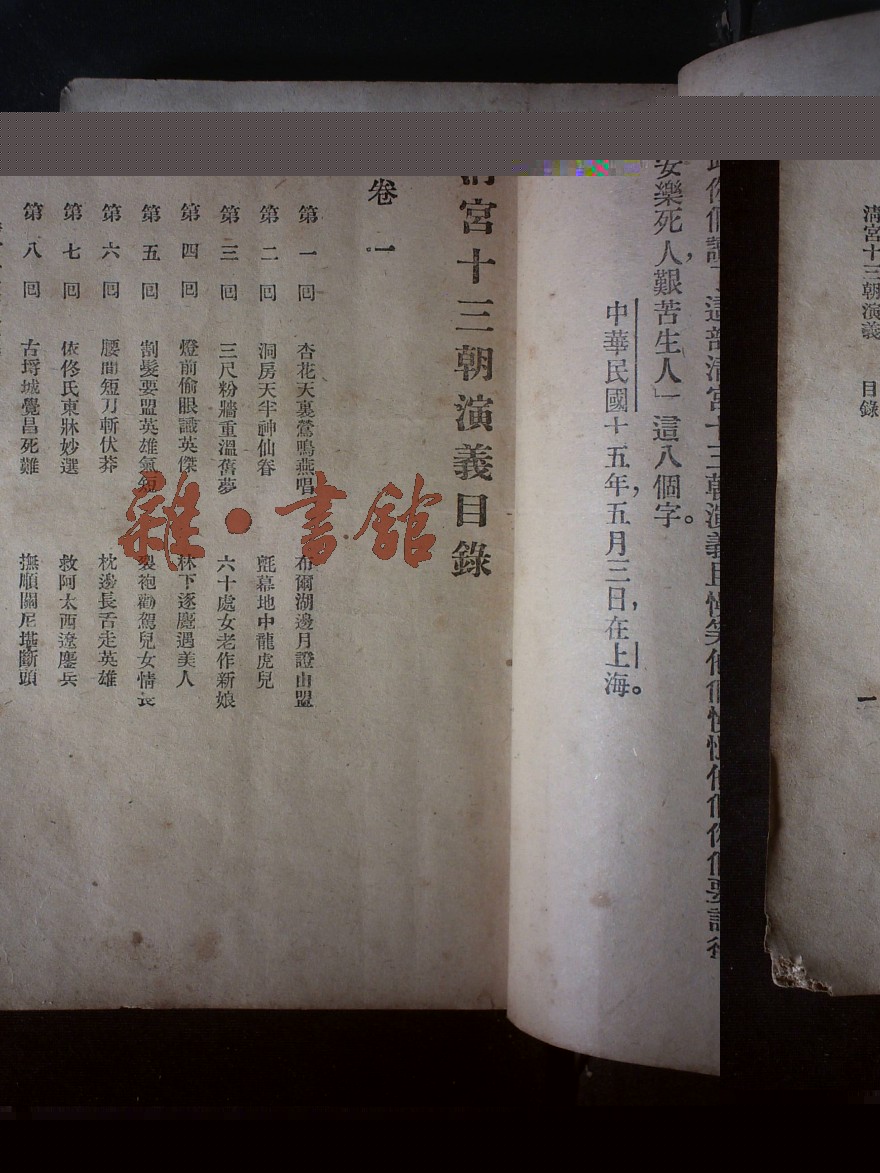 清宮十三朝演義　目錄
一
安樂死人，艱苦生人」這八個字。
中華民國十五年，五月三日，在上海。
清宮十三朝演義目錄
卷一。
第一回　杏花天裏鶯鳴燕唱　布爾湖邊月證山盟
第二回　洞房天半神仙眷　氈幕地中龍虎兒
第三回　三尺粉牆重溫舊夢　六十處女老作新娘
第四回　燈前偷眼識英傑　林下逐鹿遇美人
第五回　割髮要盟英雄氣短　裂袍勸駕兒女情長
第六回　腰間短刀斬伏莽　枕邊長舌走英雄
第七回　依佟氏東牀妙選　救阿太西遼鏖兵
第八回　古埓城覺昌死難　撫順關尼堪斷頭
雜·書館